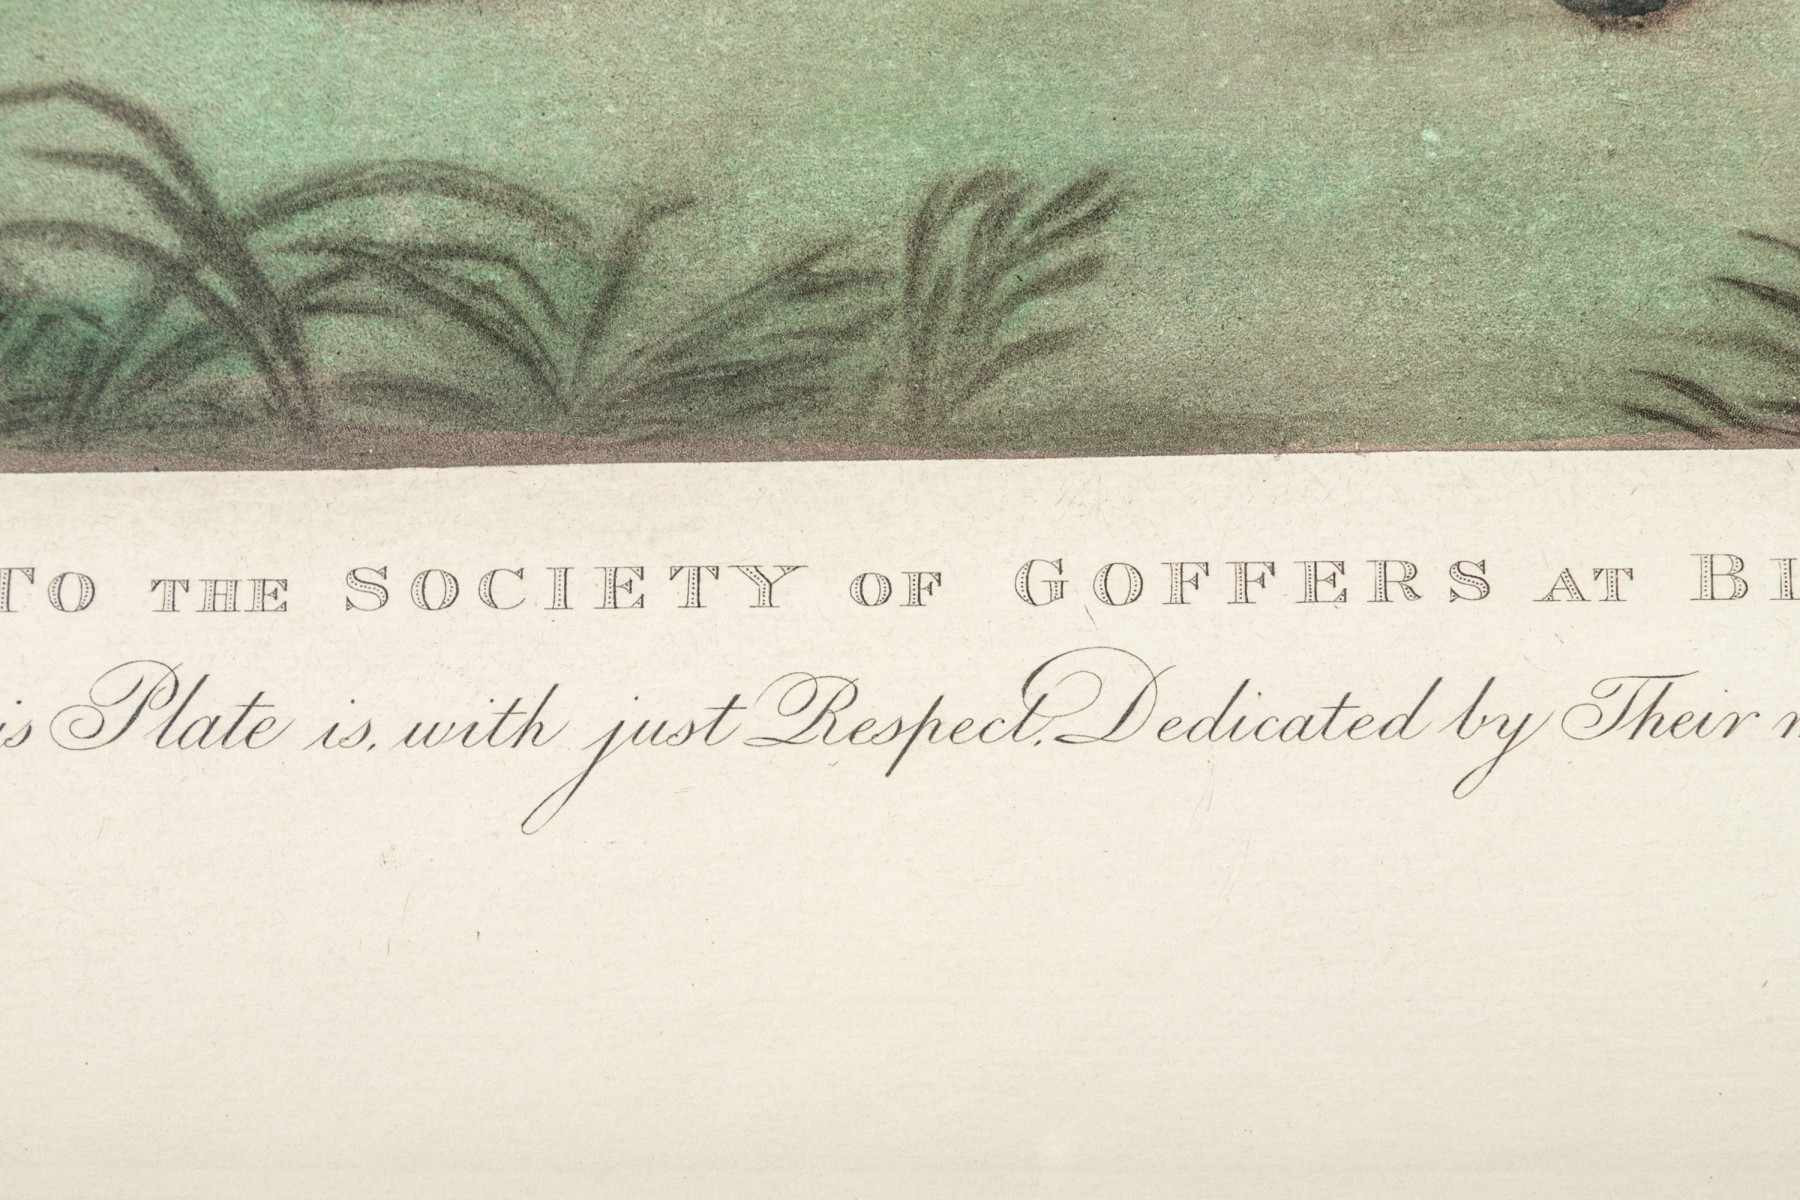 TO THE SOCIETY OF GOFFERS AT BL
is Plate is, with just Respect, Dedicated by Their